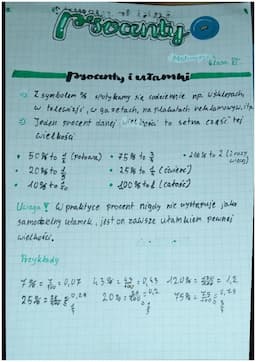 procenty
Matematyka
klasa VI
procenty i ułamki
Z symbolem % spotykamy się codziennie np. w sklepach,
w telewizji, w gazetach, na plakatach reklamowych, itp.
Jeden procent danej wielkości to setna część tej
wielkości
• 50% to 1/2 (połowa) • 75% to 3/4 • 200% to 2 (2 razy
więcej)
• 20% to 1/5 • 25% to 1/4 (ćwierć)
• 10% to 1/10 • 100% to 1 (całość)
Uwaga! W praktyce procent nigdy nie występuje jako
samodzielny ułamek, jest on zawsze ułamkiem pewnej
wielkości.
Przykłady
7% = 7/100 = 0,07 43% = 43/100 = 0,43 120% = 120/100 = 1,2
25% = 25/100 = 0,25 20% = 20/100 = 0,2 75% = 75/100 = 0,75